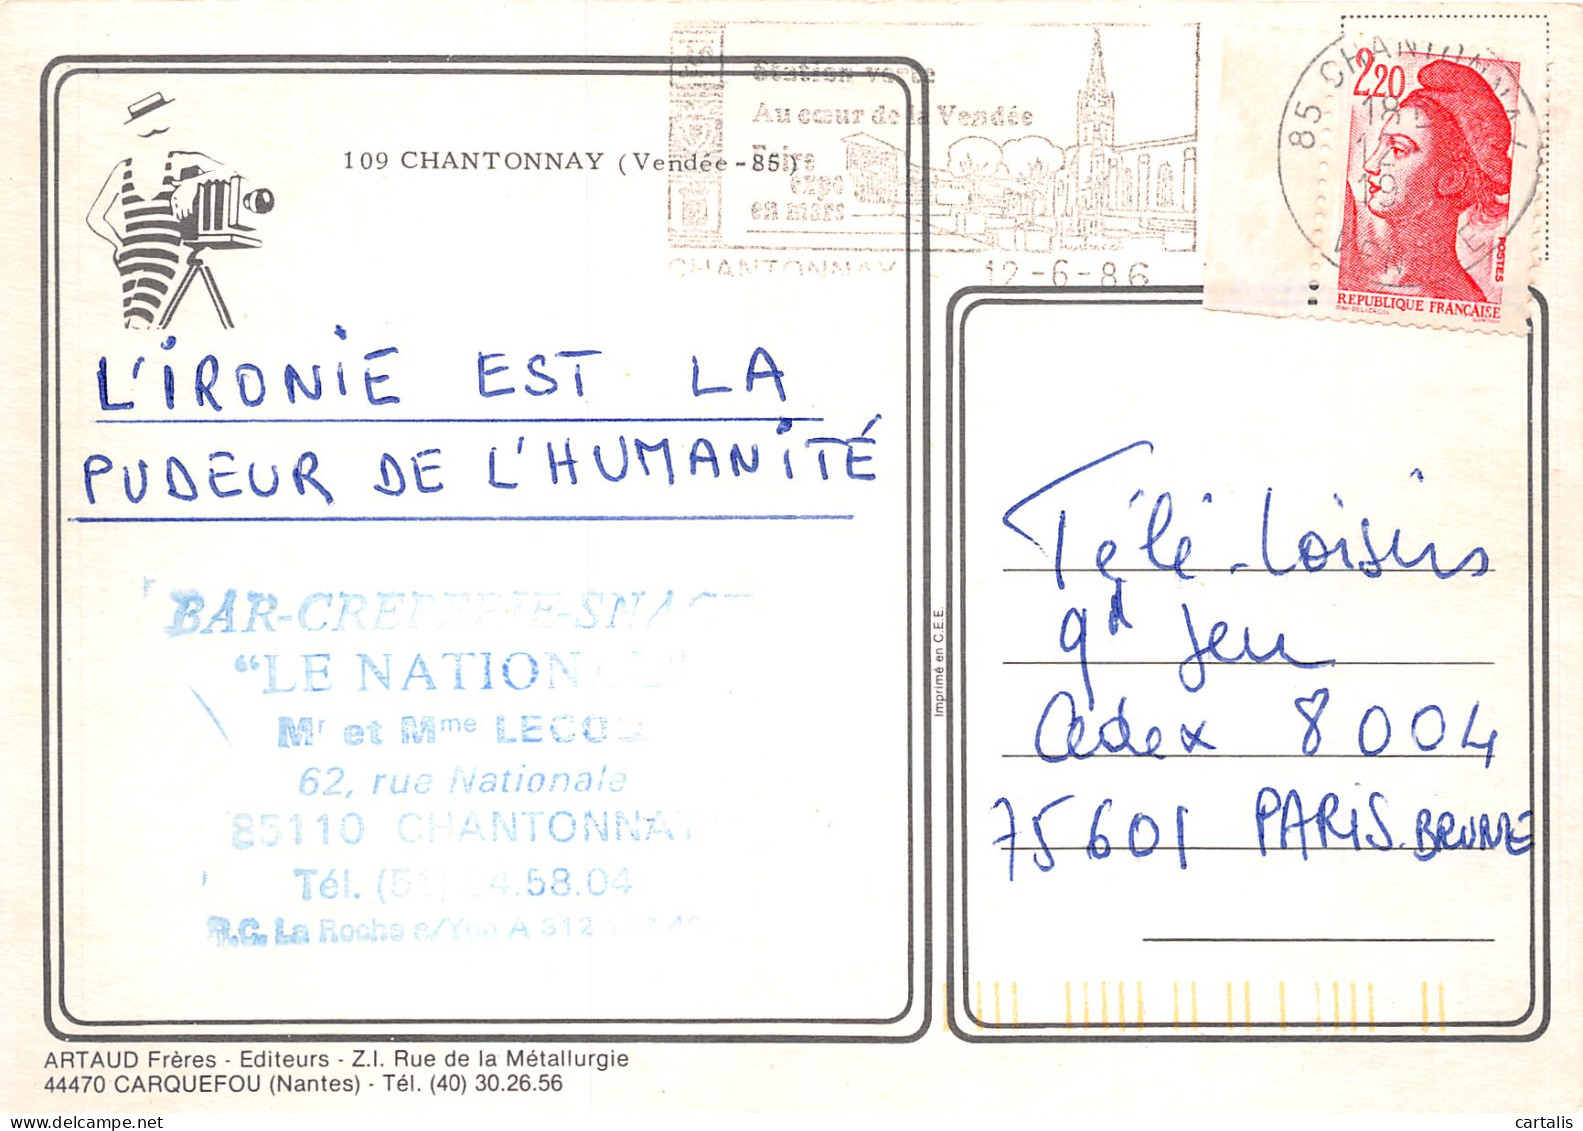 109 CHANTONNAY (Vendée - 85)
Station verte
Au cœur de la Vendée
Foire
expo
en mars
CHANTONNAY 12-6-86
85 CHANTONNAY
18
12
19
2,20
POSTES
REPUBLIQUE FRANÇAISE
L'IRONIE EST LA
PUDEUR DE L'HUMANITÉ
BAR-CREPERIE-SNACK
"LE NATIONAL"
Mr et Mme
62, rue Nationale
85110 CHANTONNAY
Tél. (51) 4.58.04
R.C. La Roche s/Yon A 312
Imprimé en C.E.E.
Télé-Loisirs
gd Jeu
Cedex 8004
75601 PARIS.BRUNE
ARTAUD Frères - Editeurs - Z.I. Rue de la Métallurgie
44470 CARQUEFOU (Nantes) - Tél. (40) 30.26.56
cartalis